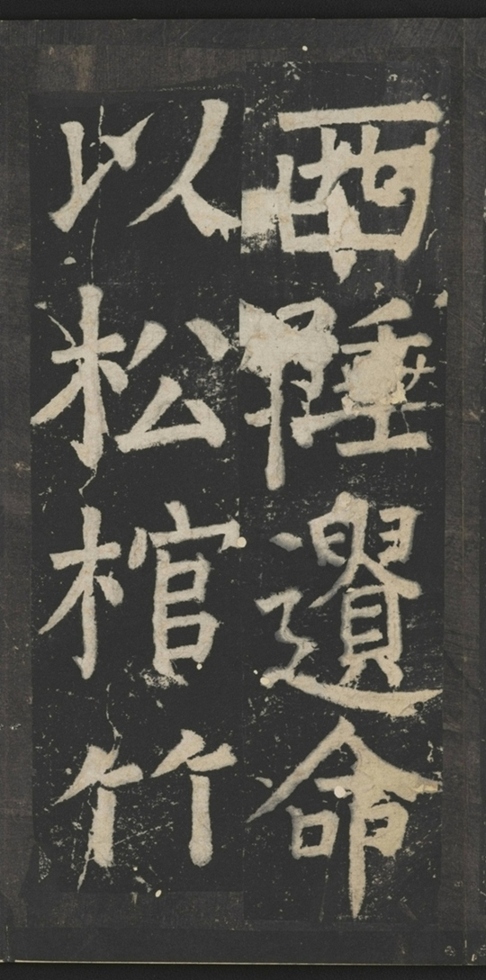 西陲遺命
以松棺竹